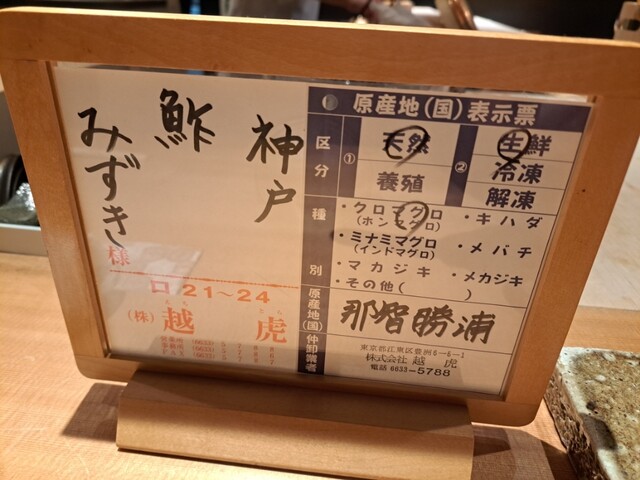 神戸
鮓
みずき
様
口21〜24
(株)越虎
原産地(国)表示票
区分
① 天然
養殖
② 生鮮
冷凍
解凍
種別
・クロマグロ
(ホンマグロ)
・キハダ
・ミナミマグロ
(インドマグロ)
・メバチ
・マカジキ
・メカジキ
・その他( )
原産地(国)
那智勝浦
仲卸業者
東京都江東区豊洲6-5-1
株式会社 越虎
電話 6633-5788